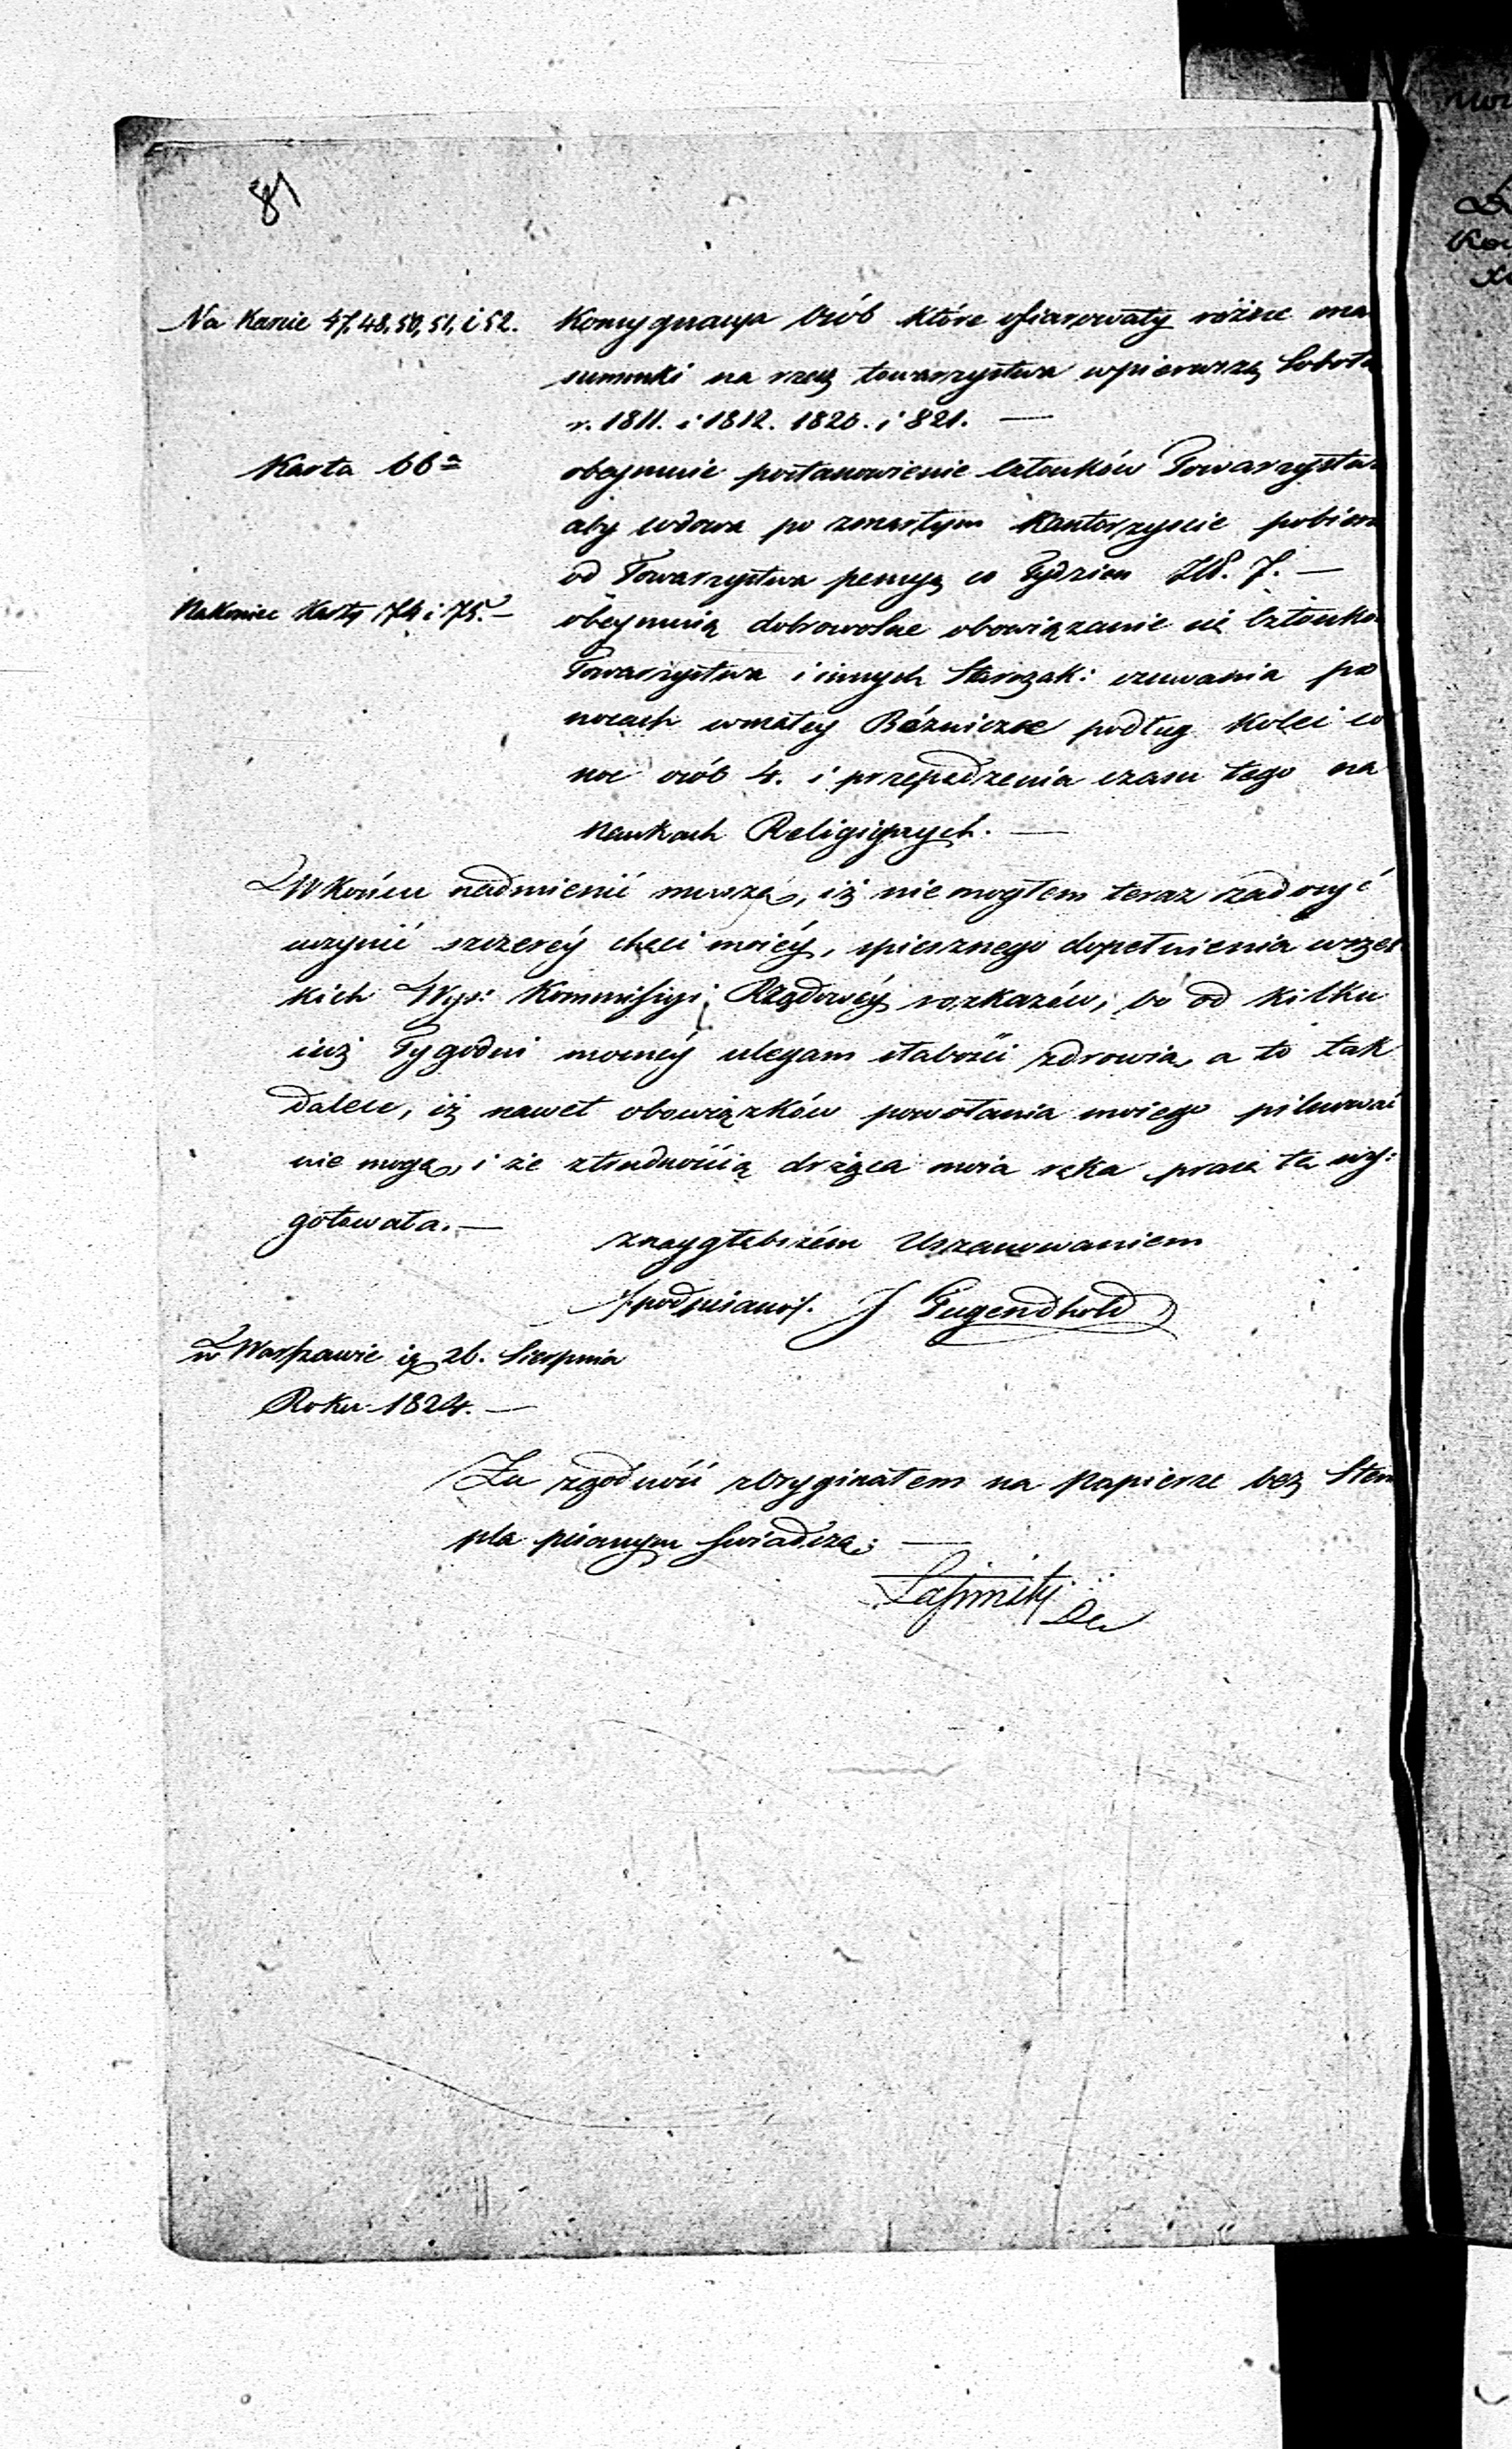 81
Na Karcie 47, 48, 50, 51, i 52.
Konsygnacya Osób które ofiarowały różne ma
summki na rzecz towarzystwa wpierwszą Sobotę
r. 1811. i 1812. 1820. i 821. —
Karta 66ª
obeymuie postanowienie Członków Towarzystwa
aby wdowa po zmarłym Kantorzyście pobiera
od Towarzystwa pensyą co Tydzien Zł. 7. —
Nakoniec Karty 74 i 75. —
obeymuią dobrowolne obowiązanie się Członków
Towarzystwa i innych Starozak: czuwania po
nocach wmałey Bóżniczce podług Kolei co
noc osób 4. i przepędzenia czasu tego na
Naukach Religiynych. —
W Końcu nadmienić muszę, iż nie mogłem teraz zadosyć
uczynić szczeréy chęci moiéy, spiesznego dopełnienia wszel
kich Wys: Kommissyi Rządowéy rozkazów, bo od kilku
iuż Tygodni mocnéy ulegam słabości zdrowia, a to tak
dalece, iż nawet obowiązków powołania moiego pilnować
nie mogę, i że ztrudnością drżąca moia ręka pracę tę wy:
gotowała. —
znaygłębszém Uszanowaniem
/podpisano/. J Tugendhold
w Warszawie 26. Sierpnia
Roku 1824. —
Za zgodność zOryginałem na Papierze bez Stem
pla pisanym świadczę. —